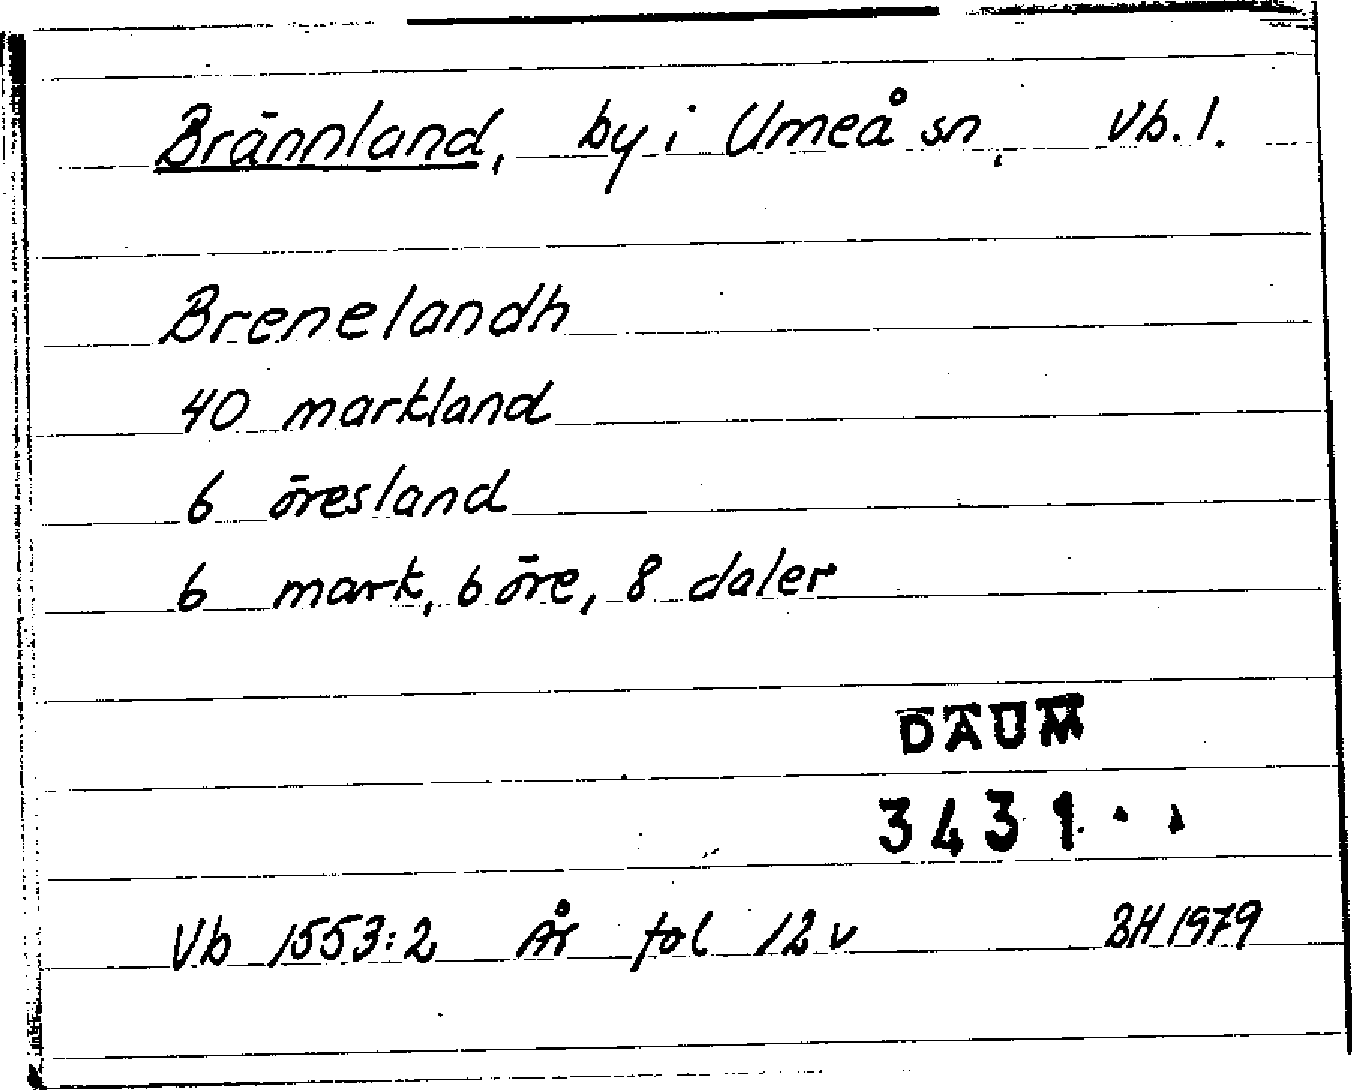 Brännland, by i Umeå sn, Vb. l.
Brenelandh
40 markland
6 öresland
6 mark, 6 öre, 8 daler
DAUM
3431
Vb 1553:2 År fol 12 v BH 1979